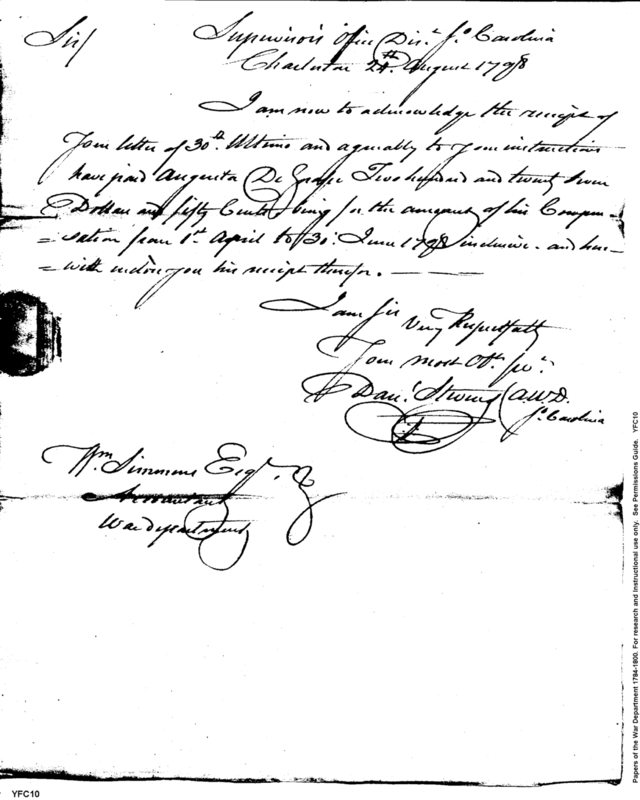 Sir/
Supervisor's Office Dist. So. Carolina
Charleston 24th. August 1798
I am now to acknowledge the receipt of
Your letter of 30th. Ultimo and agreeably to your instructions
have paid Augusta De Grasse Two hundred and twenty seven
Dollars and fifty Cents being for the amount of his Compen=
=sation from 1st. April to 30: June 1798 inclusive - and here=
=with enclose you his receipt therefor.
I am Sir
Very Respectfully
Your most Obt. Sert.
Danl. (A.W.D.
So. Carolina
Wm. Simmons Esqr.
Accountant
War department
Papers of the War Department 1784-1800. For research and instructional use only. See Permissions Guide. YFC10
YFC10